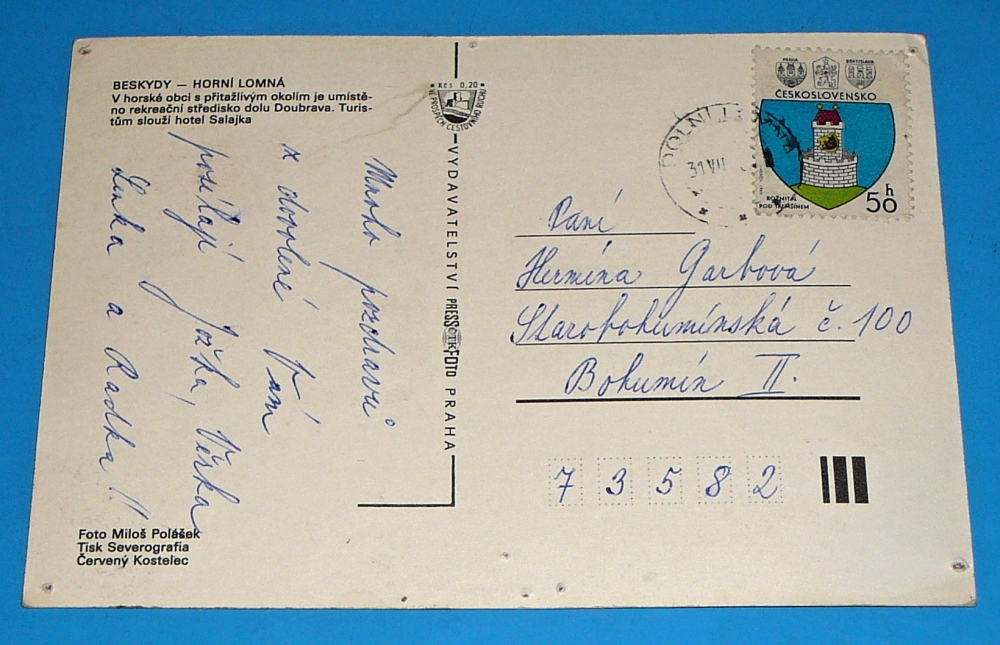 BESKYDY — HORNÍ LOMNÁ
V horské obci s přitažlivým okolím je umístě-
no rekreační středisko dolu Doubrava. Turis-
tům slouží hotel Salajka
Mnoho pozdravů
z dovolené Vám
posílají Jožka, Věrka
Lenka a Radka!!
Foto Miloš Polášek
Tisk Severografia
Červený Kostelec
Kčs 0,20
VE PROSPĚCH CESTOVNÍHO RUCHU
VYDAVATELSTVÍ PRESSFOTO PRAHA
ČTK
DOLNÍ
31 VII
PRAHA
BRATISLAVA
ČESKOSLOVENSKO
ROŽMITÁL
POD TŘEMŠÍNEM
50 h
Paní
Hermína Garbová
Starobohumínská č. 100
Bohumín II.
7 3 5 8 2